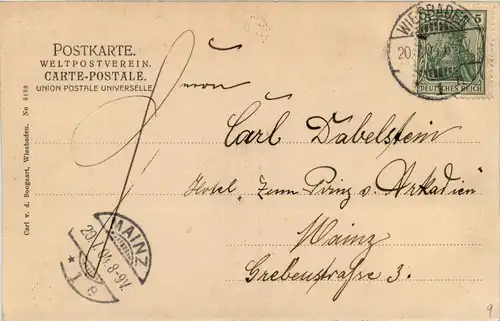 POSTKARTE.
WELTPOSTVEREIN.
CARTE-POSTALE.
UNION POSTALE UNIVERSELLE
WIESBADEN
5
DEUTSCHES REICH
Herrn
Carl Dabelstein
Hotel "Zum Prinz v. Arkadien"
Mainz
Grebenstraße 3.
MAINZ
20.7.04. 8-9V.
* 1 e
Carl v. d. Boogaart, Wiesbaden. No 8188
9